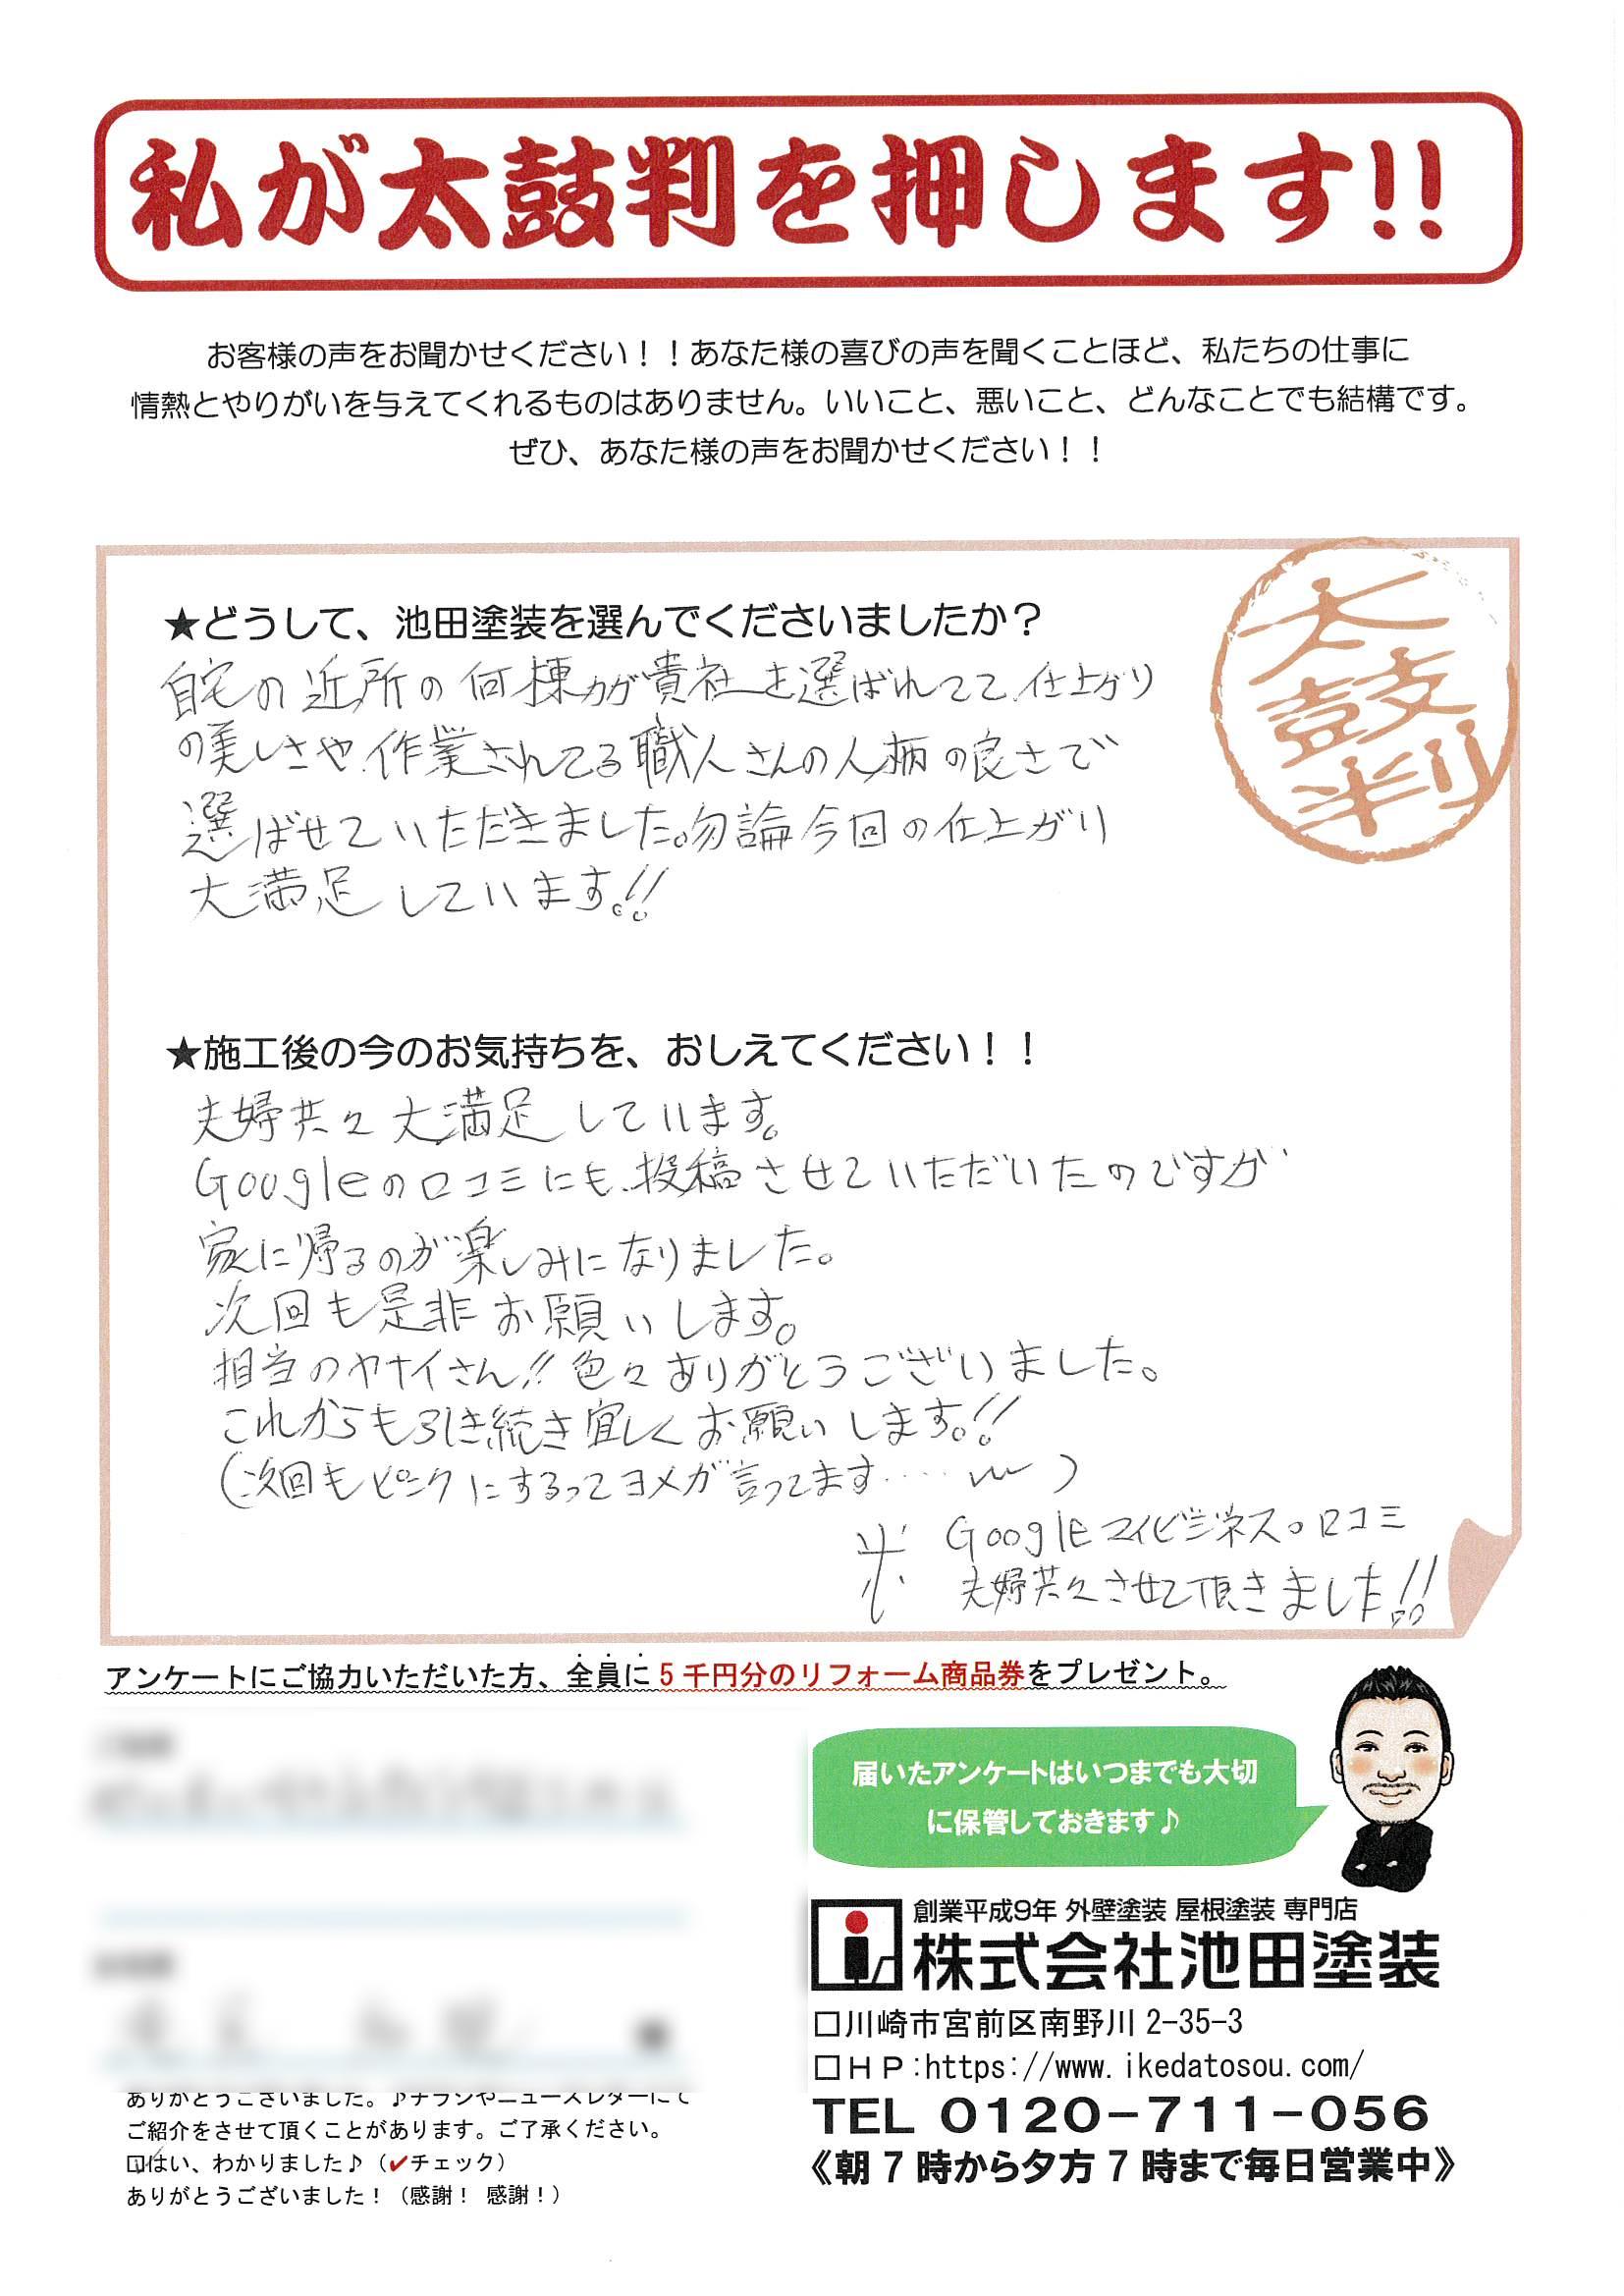 私が太鼓判を押します!!
お客様の声をお聞かせください！！あなた様の喜びの声を聞くことほど、私たちの仕事に
情熱とやりがいを与えてくれるものはありません。いいこと、悪いこと、どんなことでも結構です。
ぜひ、あなた様の声をお聞かせください！！
太鼓判
★どうして、池田塗装を選んでくださいましたか？
自宅の近所の何棟かが貴社を選ばれてて、仕上がり
の美しさや、作業されてる職人さんの人柄の良さで
選ばせていただきました。勿論今回の仕上がり
大満足しています。!!
★施工後の今のお気持ちを、おしえてください！！
夫婦共々大満足しています。
Googleの口コミにも、投稿させていただいたのですが
家に帰るのが楽しみになりました。
次回も是非お願いします。
担当のヤナイさん!!色々ありがとうございました。
これからも引き続き宜しくお願いします。!!
(次回もピンクにするってヨメが言ってます……w)
※ Googleマイビジネスの口コミ
夫婦共々させて頂きました!!
アンケートにご協力いただいた方、全員に5千円分のリフォーム商品券をプレゼント。
届いたアンケートはいつまでも大切
に保管しておきます♪
創業平成9年 外壁塗装 屋根塗装 専門店
株式会社池田塗装
□川崎市宮前区南野川2-35-3
□ＨＰ:https://www.ikedatosou.com/
TEL 0120-711-056
《朝7時から夕方7時まで毎日営業中》
ありがとうございました。♪チラシやニュースレターにて
ご紹介をさせて頂くことがあります。ご了承ください。
☑はい、わかりました♪（✔チェック）
ありがとうございました！（感謝！ 感謝！）